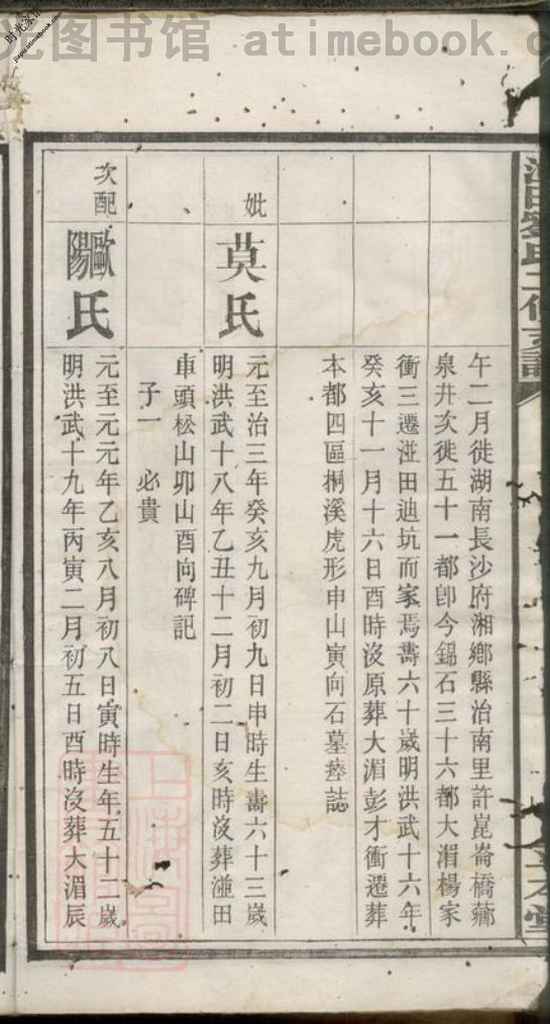 光图书馆 atimebook.c
午二月徙湖南長沙府湘鄉縣治南里許崑崙橋蘅
泉井次徙五十一都卽今錫石三十六都大湄楊家
衝三遷湴田廸坑而家焉壽六十歲明洪武十六年
癸亥十一月十六日酉時沒原葬大湄彭才衝遷葬
本都四區摑溪虎形申山寅向石墓瘞誌
妣
莫氏
元至治三年癸亥九月初九日申時生壽六十三歲
明洪武十八年乙丑十二月初二日亥時沒葬湴田
車頭松山卯山酉向碑記
子一 必貴
次配
歐陽氏
元至元元年乙亥八月初八日寅時生年五十二歲
明洪武十九年丙寅二月初五日酉時沒葬大湄辰